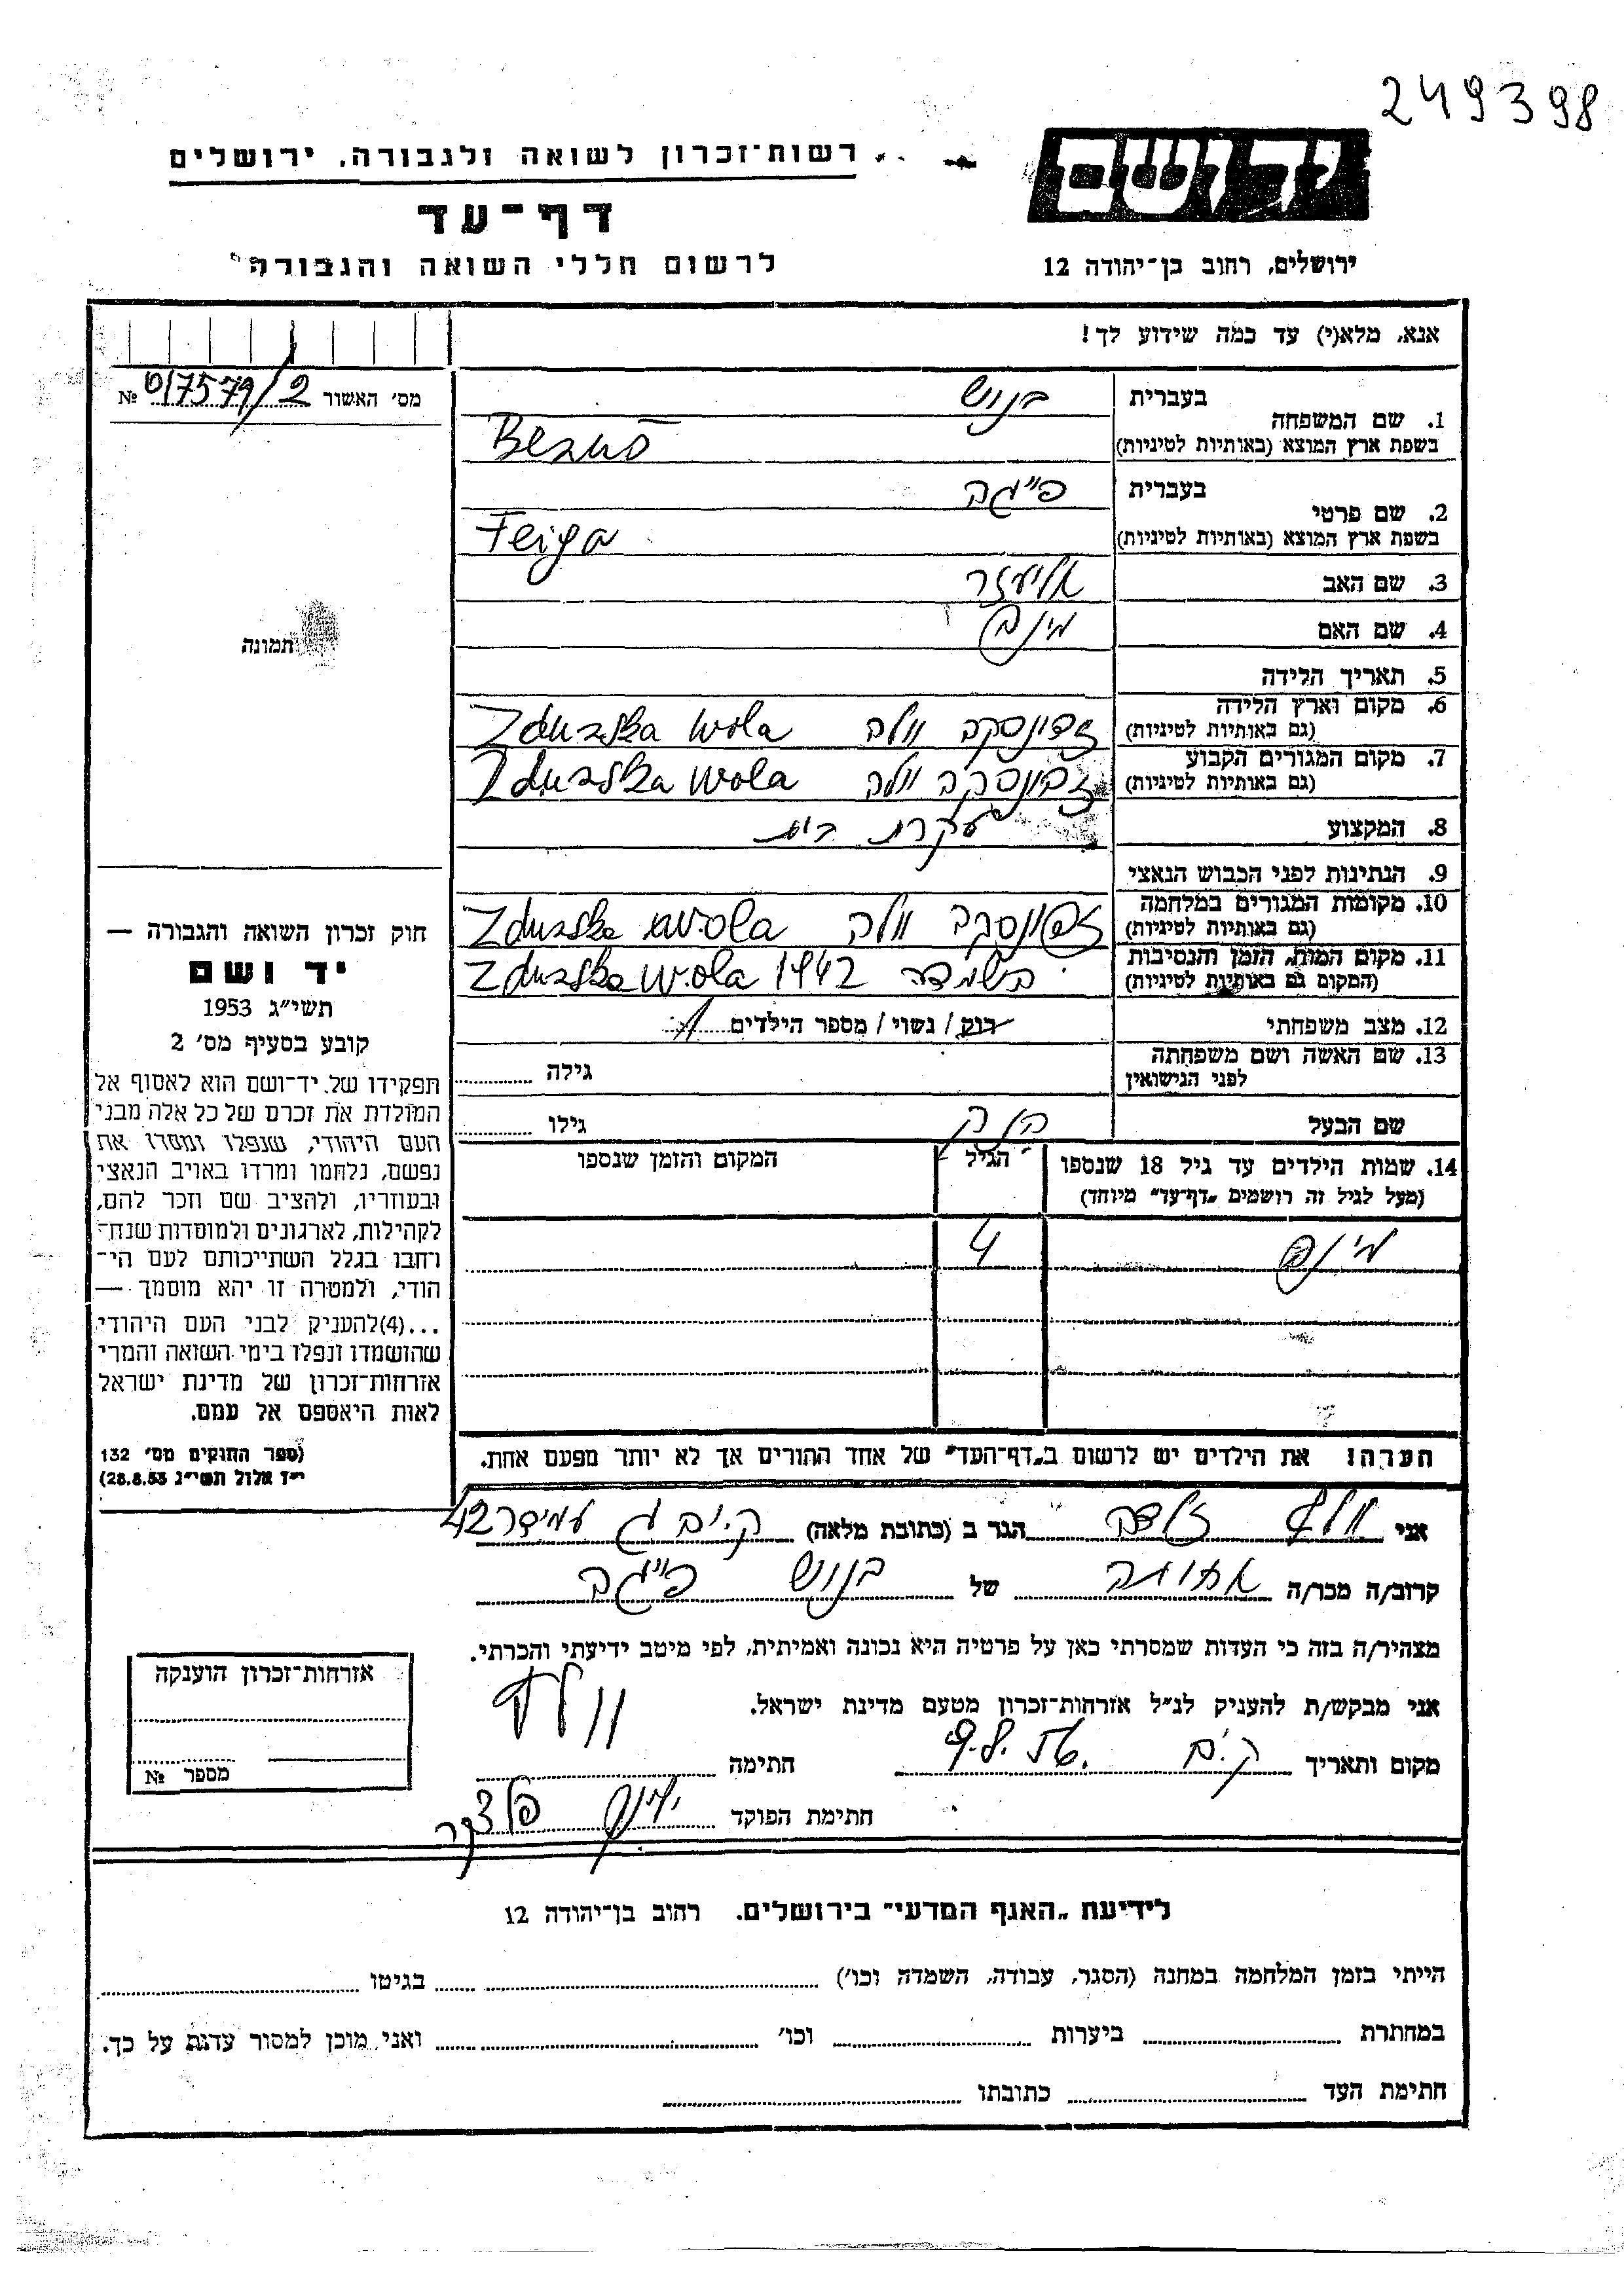 249398
יד ושם
רשות־זכרון לשואה ולגבורה, ירושלים
דף־עד
לרשום חללי השואה והגבורה
ירושלים, רחוב בן־יהודה 12
אנא, מלא(י) עד כמה שידוע לך!
מס' האשור № 017579/2
1. שם המשפחה
בעברית בנוש
בשפת ארץ המוצא (באותיות לטיניות)
2. שם פרטי
בעברית פייגה
בשפת ארץ המוצא (באותיות לטיניות) Feiga
3. שם האב אליעזר
4. שם האם
תמונה
5. תאריך הלידה
6. מקום וארץ הלידה
(גם באותיות לטיניות) זדונסקה וולה Zdunska Wola
7. מקום המגורים הקבוע
(גם באותיות לטיניות) זדונסקה וולה Zdunska Wola
8. המקצוע עקרת בית
9. הנתינות לפני הכבוש הנאצי
10. מקומות המגורים במלחמה
(גם באותיות לטיניות) זדונסקה וולה Zdunska Wola
11. מקום המות, הזמן והנסיבות
(המקום גם באותיות לטיניות) בשמדה Zdunska Wola 1942
12. מצב משפחתי רוק / נשוי / מספר הילדים 1
13. שם האשה ושם משפחתה
לפני הנישואין גילה
שם הבעל גילו
14. שמות הילדים עד גיל 18 שנספו הגיל המקום והזמן שנספו
(מעל לגיל זה רושמים „דף־עד" מיוחד)
4
הערה! את הילדים יש לרשום ב„דף־העד" של אחד ההורים אך לא יותר מפעם אחת.
חוק זכרון השואה והגבורה —
יד ושם
תשי"ג 1953
קובע בסעיף מס' 2
תפקידו של יד־ושם הוא לאסוף אל
המולדת את זכרם של כל אלה מבני
העם היהודי, שנפלו ומסרו את
נפשם, נלחמו ומרדו באויב הנאצי
ובעוזריו, ולהציב שם וזכר להם,
לקהילות, לארגונים ולמוסדות שנח־
רחבו בגלל השתייכותם לעם הי־
הודי, ולמטרה זו יהא מוסמך —
...(4)להעניק לבני העם היהודי
שהושמדו ונפלו בימי השואה והמרי
אזרחות־זכרון של מדינת ישראל
לאות היאספם אל עמם.
(ספר החוקים מס' 132
י"ד אלול תשי"ג 28.8.53)
אני וולף זלדה הגר ב (כתובת מלאה) ק. ים ג עמידר 42
קרוב/ה מכר/ה אחותה של בנוש פייגה
מצהיר/ה בזה כי העדות שמסרתי כאן על פרטיה היא נכונה ואמיתית, לפי מיטב ידיעתי והכרתי.
אני מבקש/ת להעניק לנ"ל אזרחות־זכרון מטעם מדינת ישראל.
מקום ותאריך ק. ים חתימה וולף
חתימת הפוקד
אזרחות־זכרון הוענקה
מספר №
לידיעת „האגף המדעי" בירושלים, רחוב בן־יהודה 12
הייתי בזמן המלחמה במחנה (הסגר, עבודה, השמדה וכו') בגיטו
במחתרת ביערות וכו' ואני מוכן למסור עדות על כך.
חתימת העד כתובתו